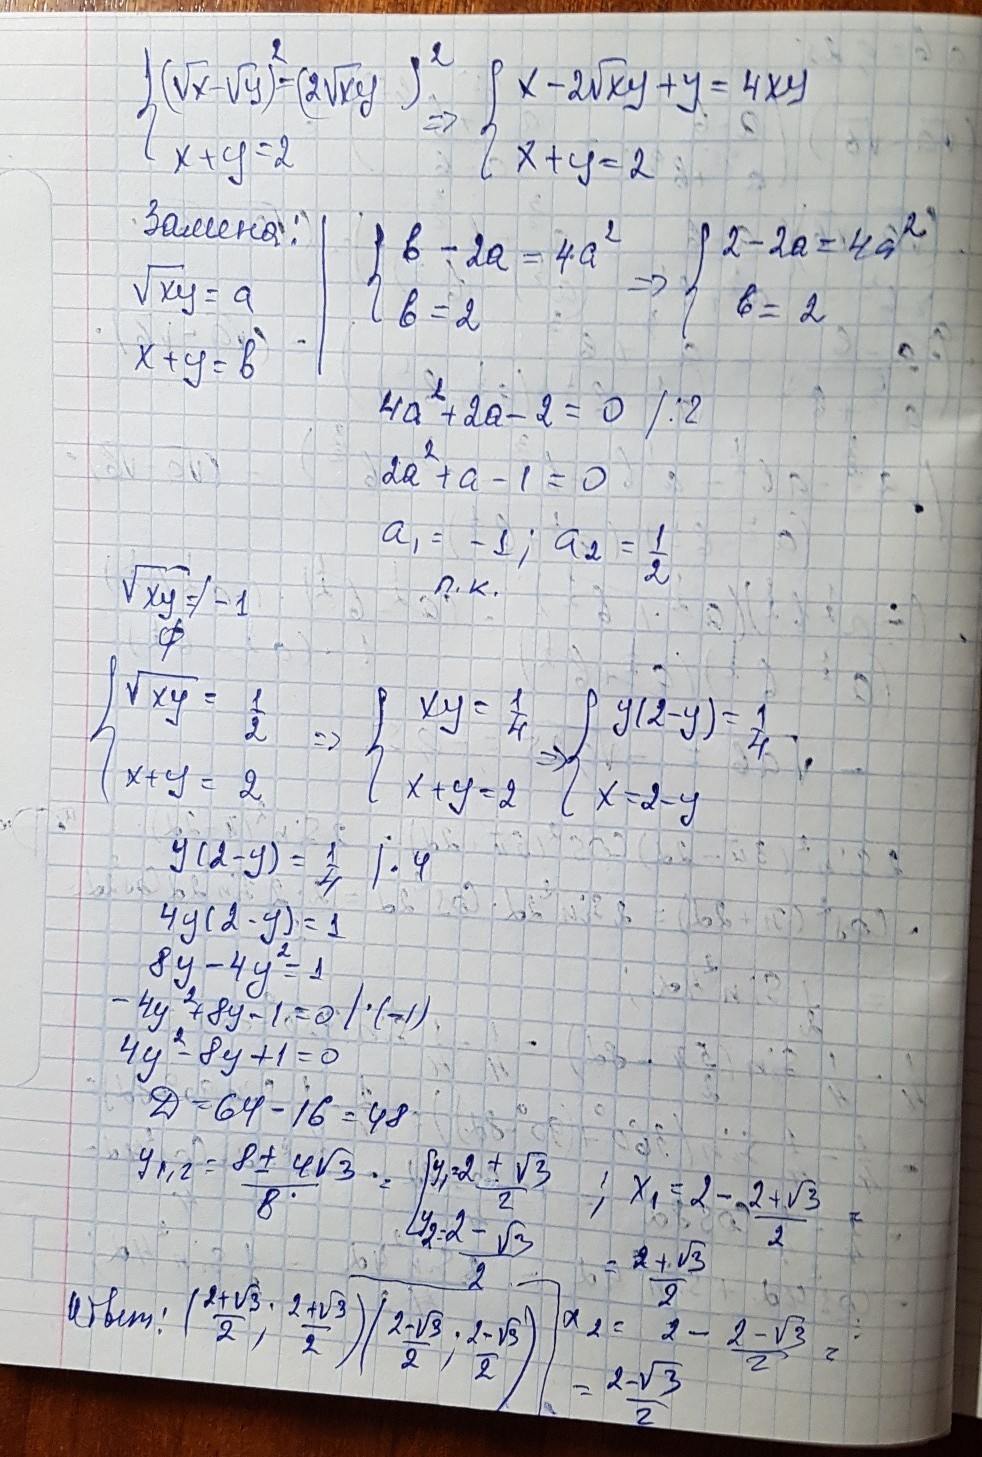 {(√x-√y)²=(2√xy)² => {x-2√xy+y=4xy
x+y=2 x+y=2
Замена:
√xy=a
x+y=b
{b-2a=4a² => {2-2a=4a²
b=2 b=2
4a²+2a-2=0 /:2
2a²+a-1=0
a₁=-1; a₂=1/2
п.к.
√xy≠-1
∅
{√xy=1/2 => {xy=1/4 => {y(2-y)=1/4
x+y=2 x+y=2 x=2-y
y(2-y)=1/4 |·4
4y(2-y)=1
8y-4y²=1
-4y²+8y-1=0 /·(-1)
4y²-8y+1=0
D=64-16=48
y₁,₂=(8±4√3)/8=[y₁=(2+√3)/2 ; x₁=2-(2+√3)/2=
y₂=(2-√3)/2 =(2+√3)/2
x₂=2-(2-√3)/2=
=(2-√3)/2
Ответ: ((2+√3)/2; (2+√3)/2)((2-√3)/2; (2-√3)/2)